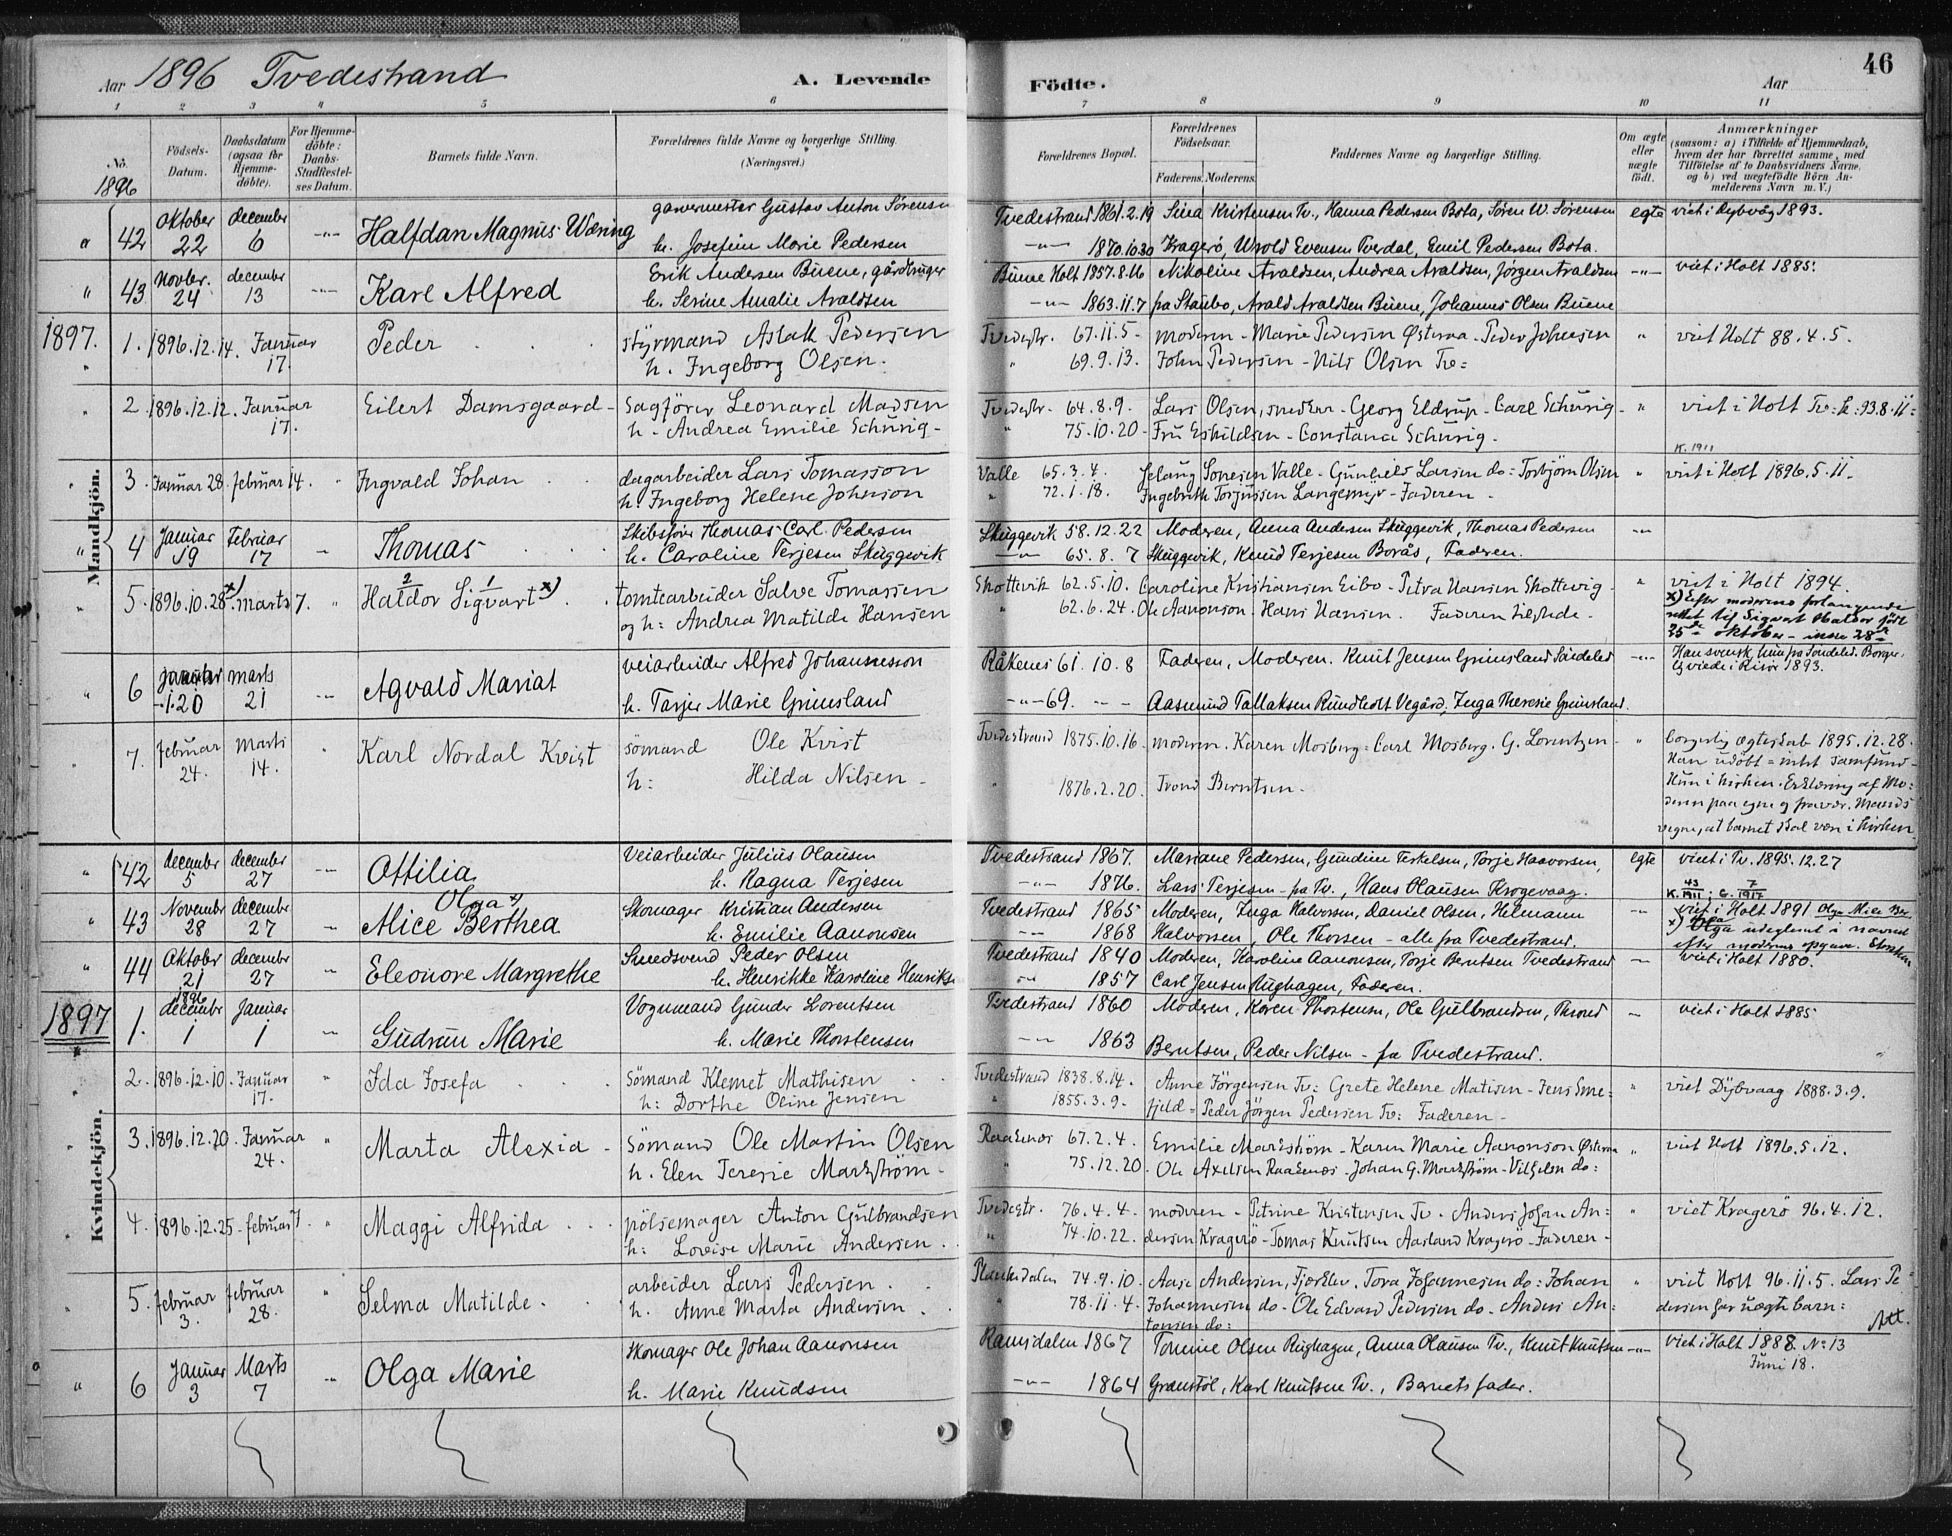 46
Aar 1896 Tvedestrand A. Levende Födte. Aar
1 2 3 4 5 6 7 8 9 10 11
No. 1896
Födsels-Datum.
Daabsdatum (ogsaa for Hjemme-döbte).
For Hjemme-döbte: Daabs-Stadfæstel-ses Datum.
Barnets fulde Navn.
Forældrenes fulde Navne og borgerlige Stilling (Næringsvei.)
Forældrenes Bopæl.
Forældrenes Födselsaar.
Faderens. Moderens.
Faddernes Navne og borgerlige Stilling.
Om ægte eller uægte födt.
Anmærkninger (saasom: a) i Tilfælde af Hjemmedaab, hvem der har forrettet samme, med Tilföielse af to Daabsvidners Navne, og b) ved uægtefödte Börn An-melderens Navn m. V.)
Mandkjön.
" 42 Oktober 22 december 6 -"- Halfdan Magnus Wæring garvermester Gustav Anton Sörensen Tvedestrand 1861.2.19 Sina Kristensen Tv., Hanna Pedersen Bota, Sören W. Sörensen egte viet i Dybvåg 1893.
h. Josefine Marie Pedersen -"- 1870.10.30 Kragerö, Wrold Evensen Tverdal, Emil Pedersen Bota.
" 43 Novbr. 24 december 13 -"- Karl Alfred Erik Andersen Buene, gårdbruger Buene Holt 1857.8.16 Nikoline Avaldsen, Andrea Avaldsen, Jörgen Avaldsen -"- viet i Holt 1885.
h. Serine Amalie Avaldsen -"- 1863.11.7 fra Staubo, Avald Avaldsen Buene, Johannes Olsen Buene
1897. 1. 1896.12.14. Januar 17. Peder styrmand Aslak Pedersen Tvedestr. 67.11.5 moderen - Marie Pedersen Østeraa - Peder Johnsen " viet Holt 88.4.5.
h. Ingeborg Olsen. " 69.9.13. John Pedersen - Nils Olsen Tv=
" 2 1896.12.12. Januar 17. Eilert Damsgaard - Sagförer Leonard Madsen Tvedestr. 64.8.9. Lars Olsen, snedker - Georg Eldrup - Carl Schürig - " viet i Holt Tv: k: 93.8.11=
h - Andrea Emilie Schürig - " 75.10.20 - Fru Eskildsen - Constance Schürig -
K. 1911
" 3. Januar 28. februar 14. " Ingvald Johan dagarbeider Lars Tomasson Valle 65.3.4. Jelaug Sonesen Valle - Gunhild Larsen do = Torbjörn Olsen " viet i Holt 1896.5.11.
h. Ingeborg Helene Johnson " 72.1.18. Ingebrikt Torjussen Langemyr - Faderen -
" 4 Januar 19 Februar 17 - Thomas Skibsförer Thomas Carl Pedersen Skuggevik 58.12.22 Moderen, Anna Andersen Skuggevik, Thomas Pedersen -"-
h. Caroline Terjesen Skuggevik -"- 65.8.7 Skuggevik, Knud Terjesen Borås, Faderen.
" 5. 1896.10.28 x) marts 7. " Haldor Sigvart x) tomtearbeider Salve Tomassen Skottevik 62.5.10. Caroline Kristiansen Eibo - Petra Hansen Skottevig - " viet i Holt 1894.
og h: Andrea Matilde Hansen " 62.6.24. Ole Aanonson - Hans Hansen. Faderen tilstede -
x) Efter moderens forlangende rettet til Sigvart Haldor födt 25de oktober - inse 28de
" 6 Januar 1.20 marts 21 -"- Agvald Mariat veiarbeider Alfred Johannesson Råkenes 61.10.8 Faderen, Moderen. Knut Jensen Grimsland Söndeled -"- Han svensk, hun fra Söndeled. Borger-lig viede i Risör 1893.
h. Tarjer Marie Grimsland -"- 69. - - Aasmund Tallaksen Rundholt Vegård, Inga Theresie Grimsland.
7. februar 24. Marts 14. " Karl Nordal Kvist sömand Ole Kvist Tvedestrand 1875.10.16. moderen. Karen Mosberg = Carl Mosberg. G. Lorentzen - " borgerlig ægteskab 1895.12.28.
h: Hilda Nilsen - " 1876.2.20. Trond Berntsen -
Han udöbt = intet samfund - Hun i kirken. Erklæring af Mo=deren paa egne og fravær. Mands vegne, at barnet skal være i kirken
Kvindekjön.
" 42 december 5 december 27 -"- Ottilia Veiarbeider Julius Olausen Tvedestrand 1867. Mariane Pedersen, Gundine Terkelsen, Torje Haavorsen, egte viet i Tv. 1895.12.27
h. Ragna Terjesen -"- 1876. Lars Terjesen - fra Tv., Hans Olausen Krogevaag.
K. 43/1911; G. 7/1917
" 43 November 28 december 27 - Olga x) Alice Berthea Skomager Kristian Andersen Tvedestrand 1865 Moderen, Inga Halvorsen, Daniel Olsen, Helmann -"- viet i Holt 1891 Olga Alice Ber.
h. Emilie Aanonsen -"- 1868 Halvorsen, Ole Thorsen - alle fra Tvedestrand.
x) Olga udeglemt i navnet efter moderens opgave.
" 44 Oktober 21 december 27 Eleonore Margrethe Smedsvend Peder Olsen Tvedestrand 1840 Moderen, Karoline Aanonsen, Torje Berntsen Tvedestrand - viet i Holt 1880.
h. Henrikke Karoline Henriksen -"- 1857 Carl Jensen Rughagen, Faderen.
1897 1. 1896 december 1 Januar 1 -"- Gudrun Marie Vognmand Gunder Lorentsen Tvedestrand 1860 Moderen, Karen Thorstensen, Ole Gulbrandsen, Thrond - viet i Holt 1885
h. Marie Thorstensen -"- 1863 Berntsen, Peder Nilsen - fra Tvedestrand.
" 2. 1896.12.10. Januar 17. " Ida Josefa Sömand Klemet Mathisen Tvedestrand 1838.8.14. Anne Jörgensen Tv: Grete Helene Matisen - Jens Sme= " viet Dybvaag 1888.3.9.
h: Dorthe Oline Jensen " 1855.3.9. fjeld = Peder Jörgen Pedersen Tv: Faderen -
" 3. 1896.12.20. Januar 24. " Marta Alexia - Sömand Ole Martin Olsen Raakenæs 67.2.4. Emilie Markström - Karen Marie Aanonson Österaa " viet Holt 1896.5.12.
h. Elen Teresie Markström - " 75.12.20. Ole Axelsen Raakenæs - Johan G. Markström - Vilhelm do:
" 4. 1896.12.25 - februar 7. " Maggi Alfrida pölsemager Anton Gulbrandsen Tvedestr. 76.4.4. moderen - Petrine Kristensen Tv - Anders Johan An= " viet Kragerö 96.4.12.
h: Lovise Marie Andersen. " 74.10.22. dersen Kragerö - Tomas Knutsen Aasland Kragerö - Faderen -
" 5. februar 3. februar 28. " Selma Matilde. arbeider Lars Pedersen. Plankedalen 74.9.10. Aase Andersen, Fjærkleiv. Tora Johannesen do: Johan " viet Holt 96.11.5. Lars Pe
h. Anne Marta Andersen. " 78.11.4. Johannesen do - Ole Edvard Pedersen do - Anders An=tonsen do: dersen har uægte barn: Att.
" 6 Januar 3 Marts 7 -"- Olga Marie Skomager Ole Johan Aanonsen Ramsdalen 1867 Tomine Olsen Rughagen, Anna Olausen Tv., Knut Knutsen -"- viet i Holt 1888. No 13 Juni 18.
h. Marie Knudsen -"- 1864 Granstöl, Karl Knutsen Tv., Barnets fader.